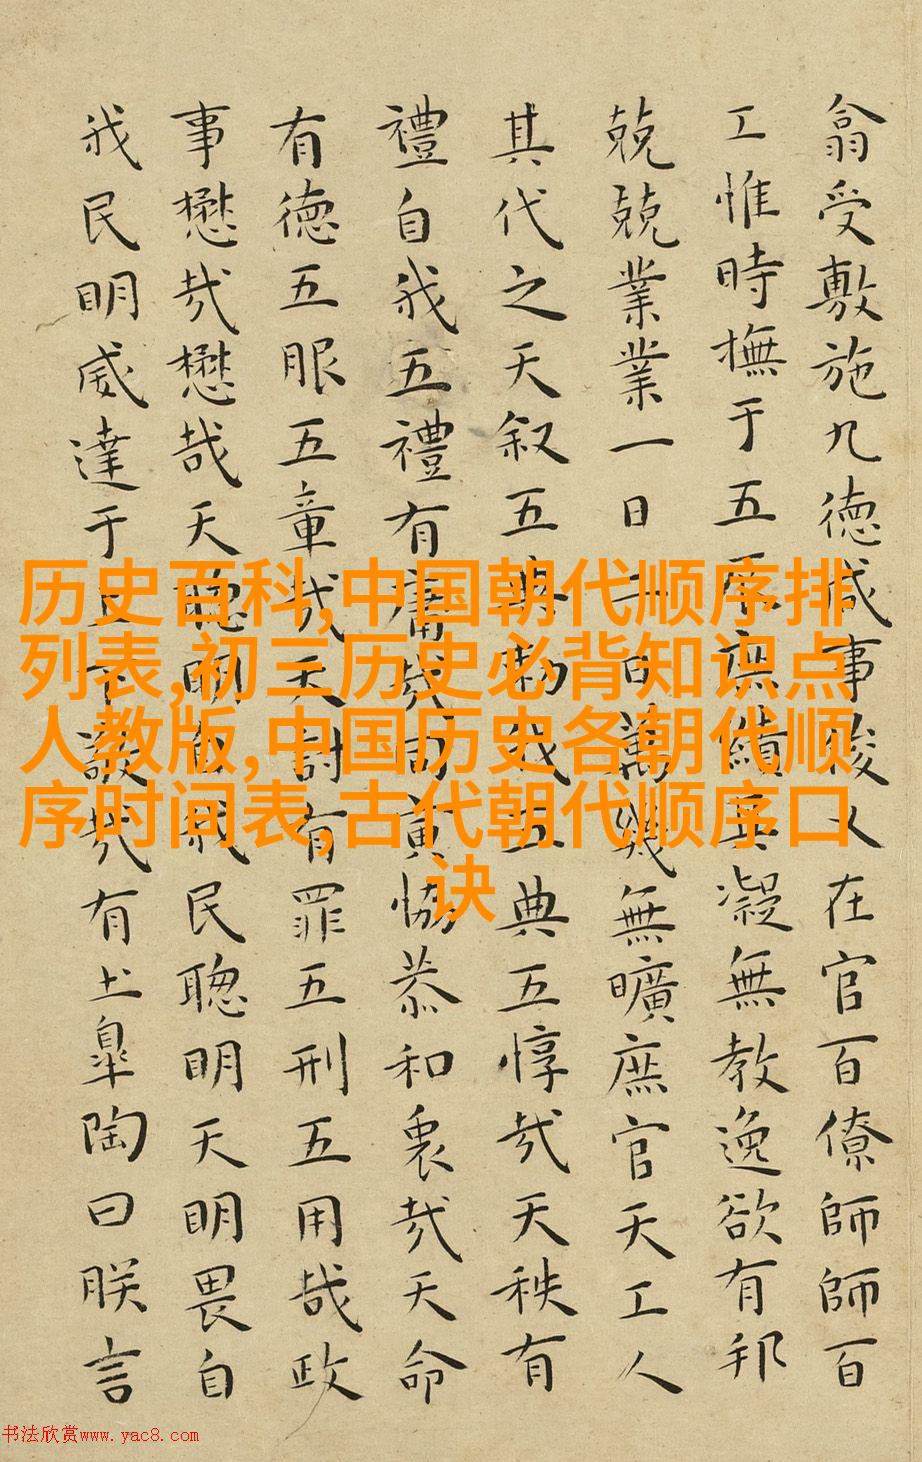 翕受敷施九德咸事俊乂在官百僚師師百
工惟時撫于五辰庶績其凝無教逸欲有邦
兢兢業業一日二日萬幾無曠庶官天工人
其代之天叙五典勑我五典五惇哉天秩有
禮自我五禮有庸哉同寅恊恭和衷哉天命
有德五服五章哉天討有罪五刑五用哉政
事懋哉懋哉天聰明自我民聰明天明畏自
我民明威達于上下敬哉有土皐陶曰朕言
历史百科,中国朝代顺序排
列表,初三历史必背知识点
人教版,中国历史各朝代顺
序时间表,古代朝代顺序口
诀
书法欣赏www.yac8.com